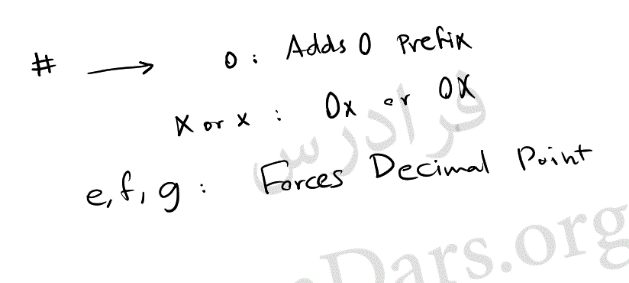 # → o : Adds 0 Prefix
X or x : 0x or 0X
e, f, g : Forces Decimal Point
فرادرس
Dars.org